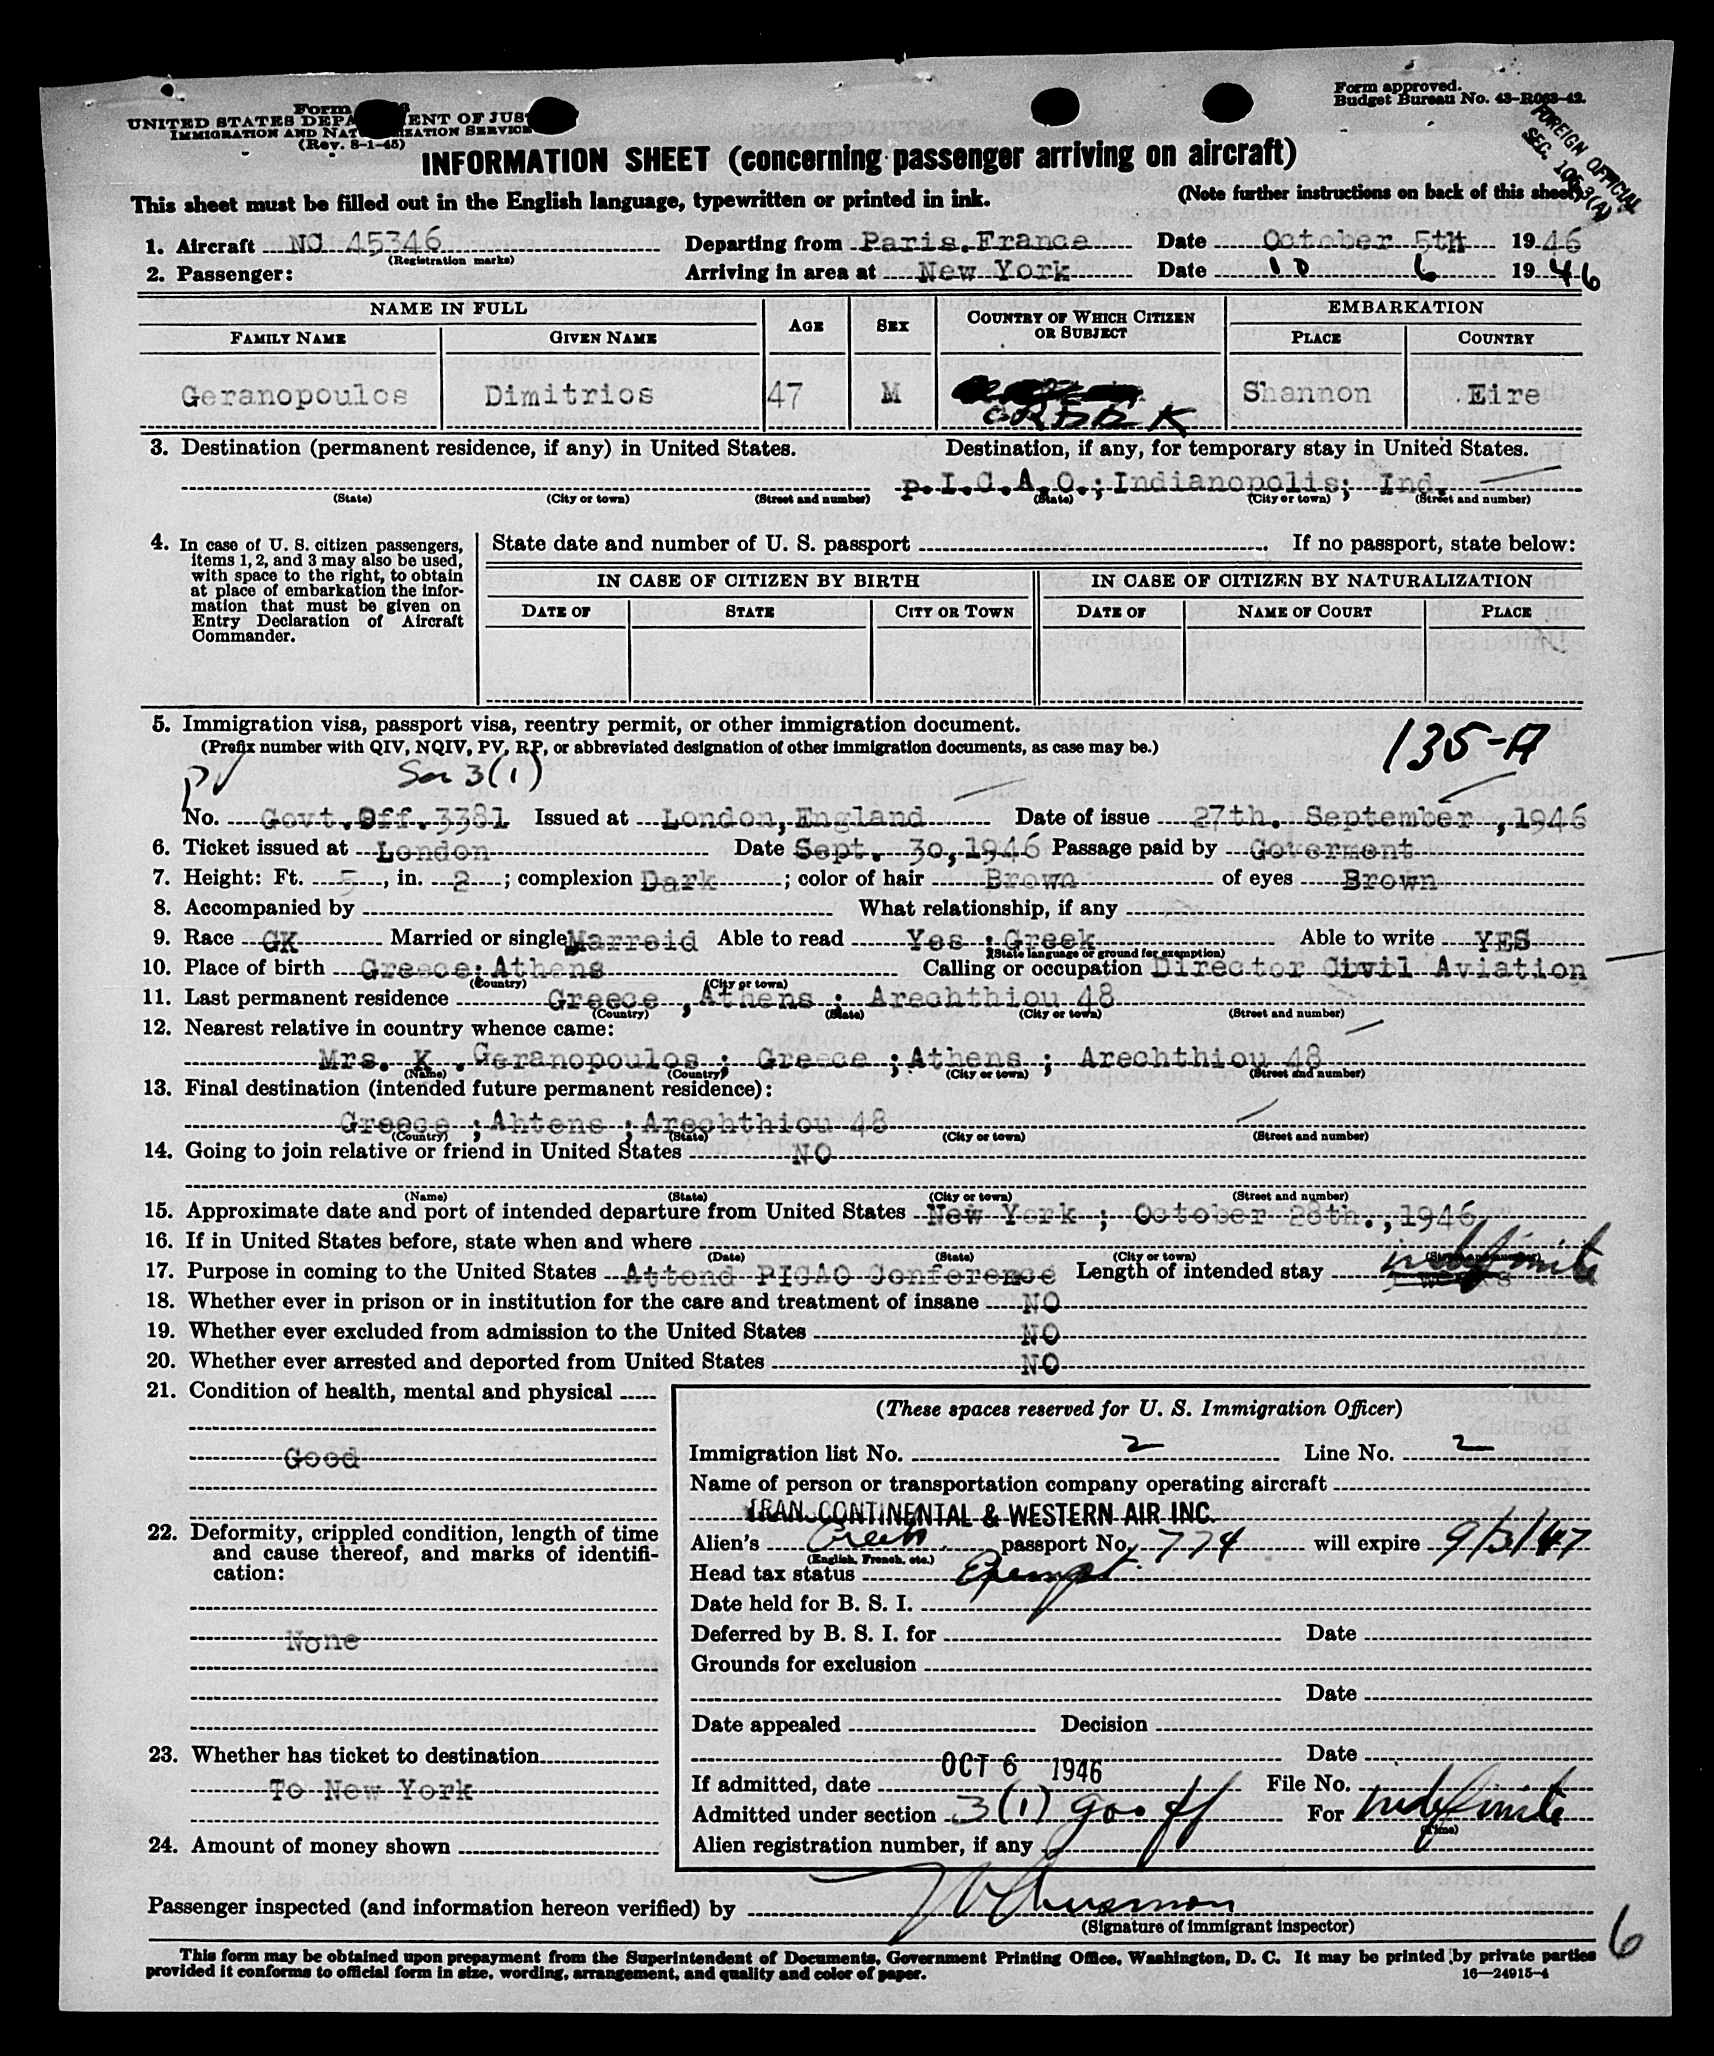 Form
UNITED STATES DEPARTMENT OF JUSTICE
IMMIGRATION AND NATURALIZATION SERVICE
(Rev. 8-1-45)
Form approved.
Budget Bureau No. 43-R063-42.
FOREIGN OFFICIAL
SEC. 105.3(A)
INFORMATION SHEET (concerning passenger arriving on aircraft)
This sheet must be filled out in the English language, typewritten or printed in ink. (Note further instructions on back of this sheet)
1. Aircraft NC 45346 Departing from Paris.France Date October 5th 1946
(Registration marks)
2. Passenger: Arriving in area at New York Date 10 6 1946
NAME IN FULL AGE SEX COUNTRY OF WHICH CITIZEN OR SUBJECT EMBARKATION
FAMILY NAME GIVEN NAME PLACE COUNTRY
Geranopoulos Dimitrios 47 M GREEK Shannon Eire
3. Destination (permanent residence, if any) in United States. Destination, if any, for temporary stay in United States.
p.I.C.A.O.; Indianopolis; Ind.
(State) (City or town) (Street and number) (State) (City or town) (Street and number)
4. In case of U. S. citizen passengers, items 1, 2, and 3 may also be used, with space to the right, to obtain at place of embarkation the information that must be given on Entry Declaration of Aircraft Commander.
State date and number of U. S. passport If no passport, state below:
IN CASE OF CITIZEN BY BIRTH IN CASE OF CITIZEN BY NATURALIZATION
DATE OF STATE CITY OR TOWN DATE OF NAME OF COURT PLACE
5. Immigration visa, passport visa, reentry permit, or other immigration document.
(Prefix number with QIV, NQIV, PV, RP, or abbreviated designation of other immigration documents, as case may be.)
135-A
PV Sec 3(1)
No. Govt.Off.3381 Issued at London,England Date of issue 27th. September ,1946
6. Ticket issued at London Date Sept. 30,1946 Passage paid by Goverment
7. Height: Ft. 5, in. 2; complexion Dark; color of hair Brown of eyes Brown
8. Accompanied by What relationship, if any
9. Race GK Married or single Marreid Able to read Yes ; Greek Able to write YES
(State language or ground for exemption)
10. Place of birth Greece; Athens Calling or occupation Director Civil Aviation
(Country) (City or town)
11. Last permanent residence Greece , Athens ; Arechthiou 48
(Country) (State) (City or town) (Street and number)
12. Nearest relative in country whence came:
Mrs. K .Geranopoulos ; Greece ; Athens ; Arechthiou 48
(Name) (Country) (City or town) (Street and number)
13. Final destination (intended future permanent residence):
Greece ; Ahtens ; Arechthiou 48
(Country) (State) (City or town) (Street and number)
14. Going to join relative or friend in United States NO
(Name) (State) (City or town) (Street and number)
15. Approximate date and port of intended departure from United States New York ; October 28th.,1946
16. If in United States before, state when and where
(Date) (State) (City or town) (Street and number)
17. Purpose in coming to the United States Attend PICAO Conference Length of intended stay indefinite
18. Whether ever in prison or in institution for the care and treatment of insane NO
19. Whether ever excluded from admission to the United States NO
20. Whether ever arrested and deported from United States NO
21. Condition of health, mental and physical
Good
22. Deformity, crippled condition, length of time and cause thereof, and marks of identification:
None
23. Whether has ticket to destination
To New York
24. Amount of money shown
(These spaces reserved for U. S. Immigration Officer)
Immigration list No. 2 Line No. 2
Name of person or transportation company operating aircraft
TRAN. CONTINENTAL & WESTERN AIR INC.
Alien's Greek passport No. 774 will expire 9/3/47
(English, French, etc.)
Head tax status Exempt
Date held for B. S. I.
Deferred by B. S. I. for Date
Grounds for exclusion
Date
Date appealed Decision
Date
If admitted, date OCT 6 1946 File No.
Admitted under section 3(1) go. off For Indefinite
(Time)
Alien registration number, if any
Passenger inspected (and information hereon verified) by
(Signature of immigrant inspector)
6
This form may be obtained upon prepayment from the Superintendent of Documents, Government Printing Office, Washington, D. C. It may be printed by private parties
provided it conforms to official form in size, wording, arrangement, and quality and color of paper. 16—24915-4